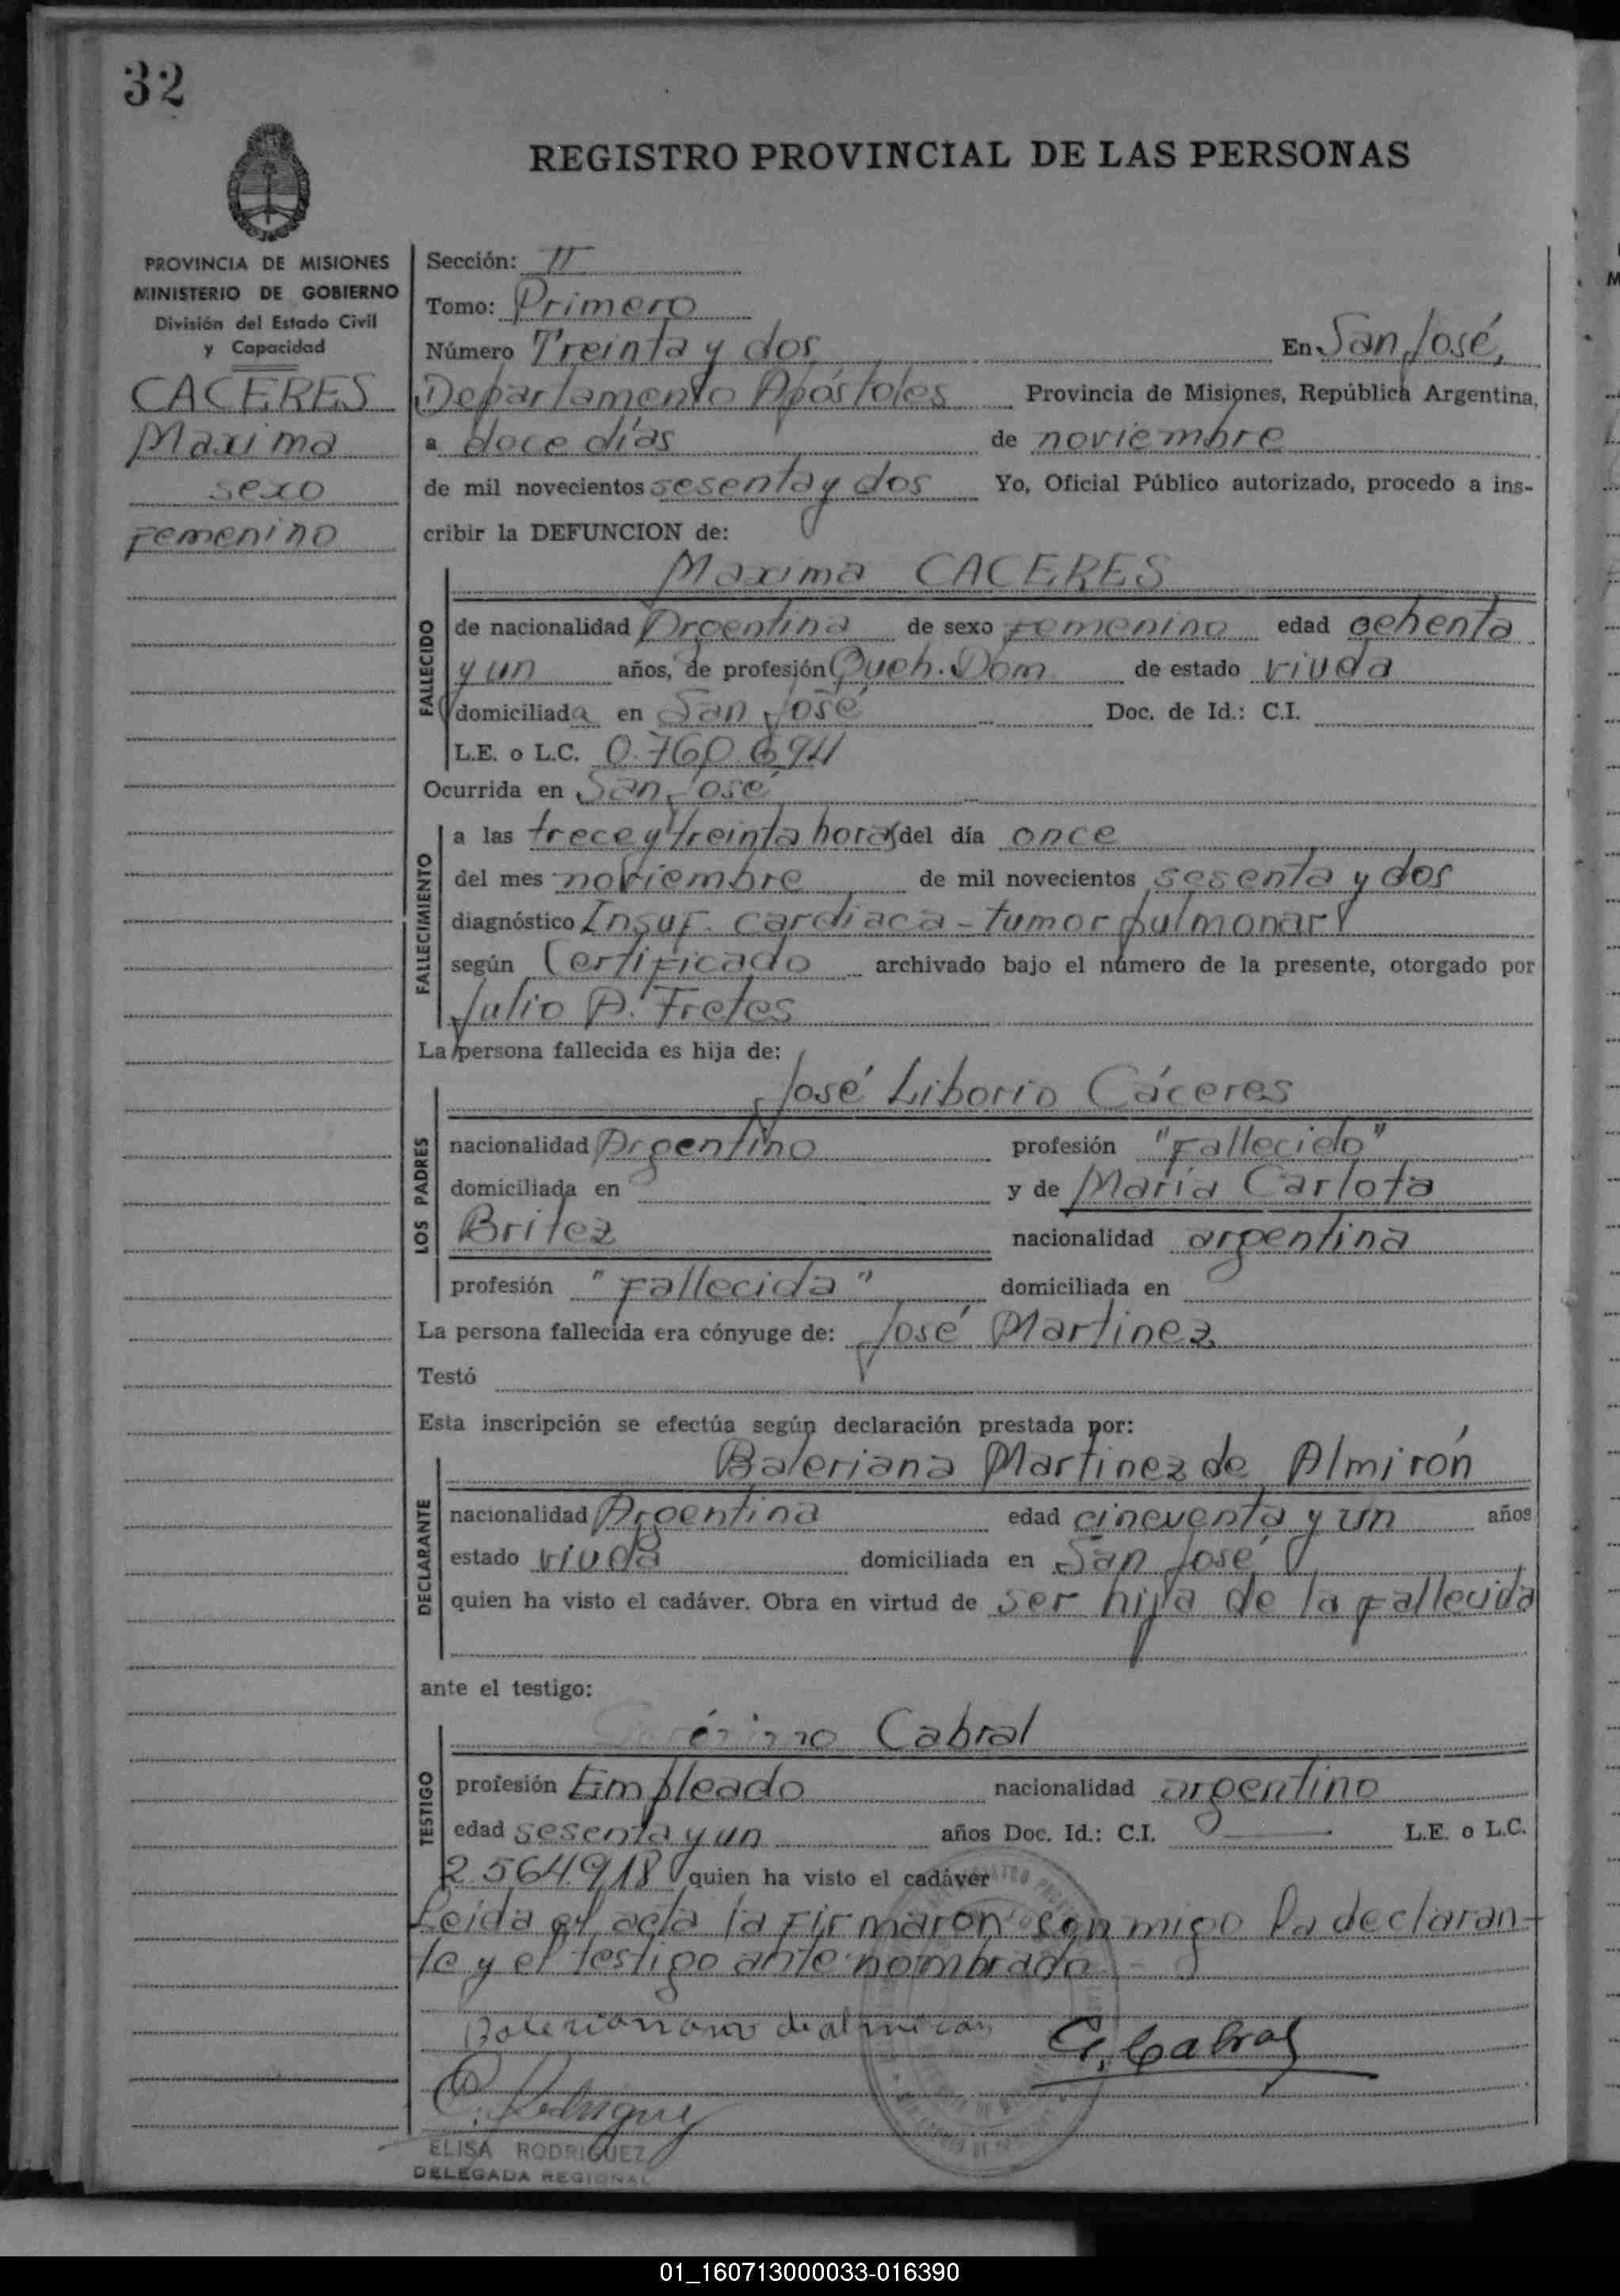 32
REGISTRO PROVINCIAL DE LAS PERSONAS
PROVINCIA DE MISIONES
MINISTERIO DE GOBIERNO
División del Estado Civil
y Capacidad
CACERES
Maxima
sexo
Femenino
Sección: II
Tomo: Primero
Número Treinta y dos En San José,
Departamento Apóstoles Provincia de Misiones, República Argentina,
a doce días de noviembre
de mil novecientos sesenta y dos Yo, Oficial Público autorizado, procedo a ins-
cribir la DEFUNCION de:
Maxima CACERES
FALLECIDO
de nacionalidad Argentina de sexo Femenino edad ochenta
y un años, de profesión Queh. Dom. de estado viuda
domiciliada en San José Doc. de Id.: C.I.
L.E. o L.C. 0.760.694
Ocurrida en San José
FALLECIMIENTO
a las trece y treinta horas del día once
del mes noviembre de mil novecientos sesenta y dos
diagnóstico Insuf. cardíaca - tumor pulmonar
según Certificado archivado bajo el número de la presente, otorgado por
Julio A. Fretes
La persona fallecida es hija de:
José Liborio Cáceres
LOS PADRES
nacionalidad Argentino profesión "Fallecido"
domiciliada en y de María Carlota
Britez nacionalidad argentina
profesión "Fallecida" domiciliada en
La persona fallecida era cónyuge de: José Martinez
Testó
Esta inscripción se efectúa según declaración prestada por:
Baleriana Martinez de Almirón
DECLARANTE
nacionalidad Argentina edad cincuenta y un años
estado viuda domiciliada en San José
quien ha visto el cadáver. Obra en virtud de ser hija de la fallecida
ante el testigo:
Cabral
TESTIGO
profesión Empleado nacionalidad argentino
edad sesenta y un años Doc. Id.: C.I. — L.E. o L.C.
2.564.918 quien ha visto el cadáver
Leida el acta la firmaron conmigo la declaran-
te y el testigo ante nombrado -
de almiron G. Cabral
ELISA RODRIGUEZ
DELEGADA REGIONAL
01_160713000033-016390